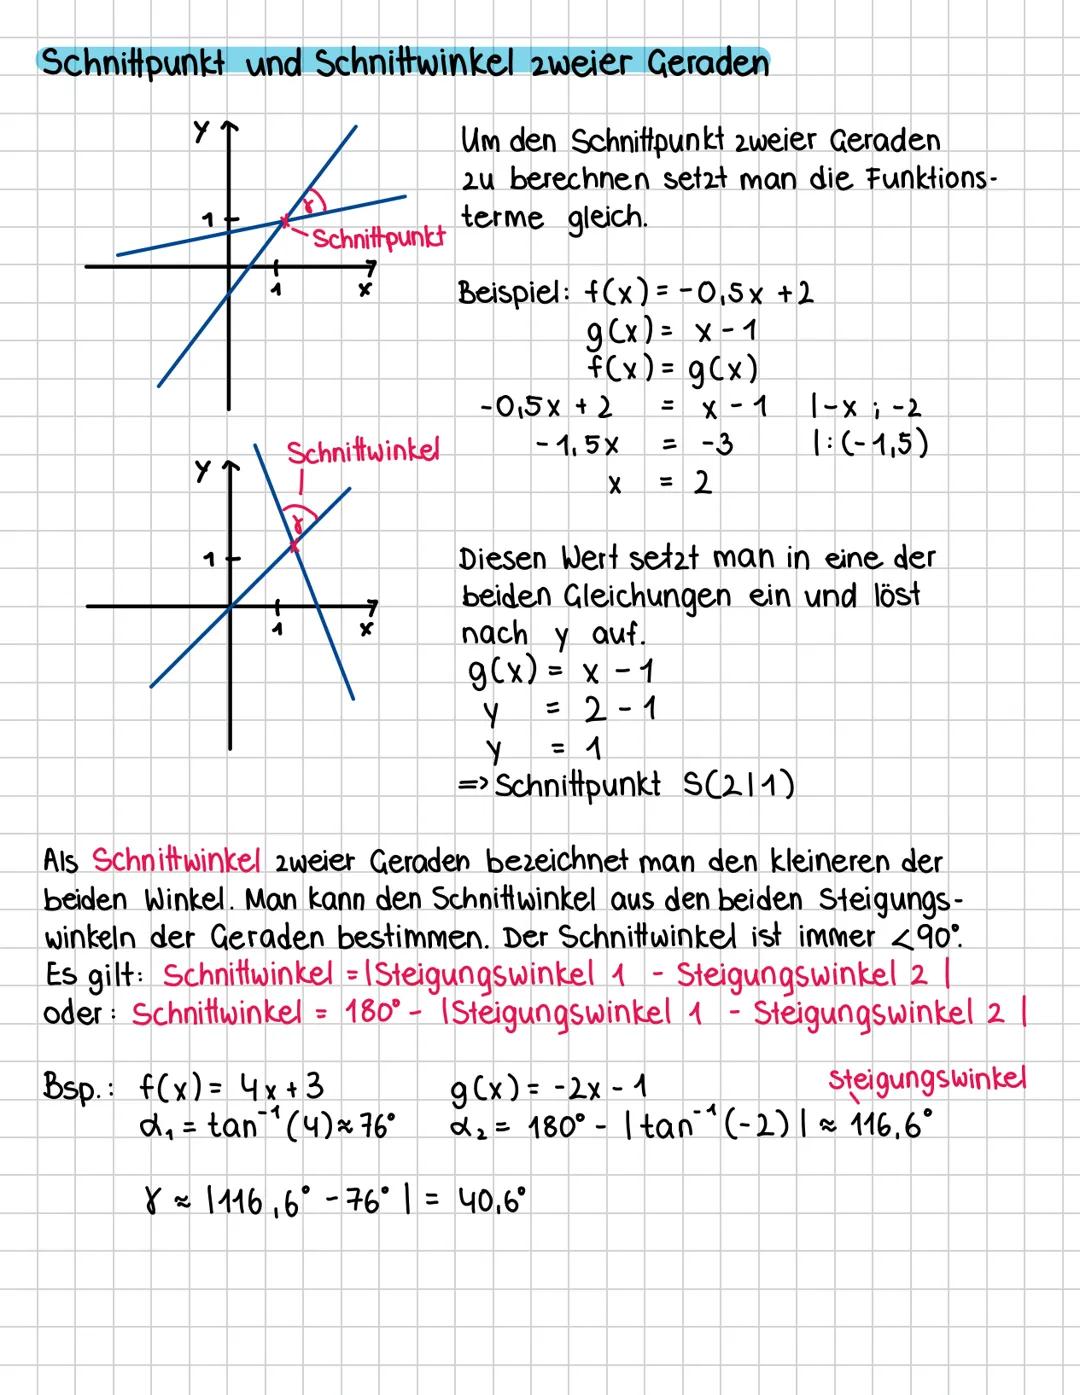 Schnittpunkt und Schnittwinkel zweier Geraden
y
1
γ
Schnittpunkt
1
x
Um den Schnittpunkt zweier Geraden
zu berechnen setzt man die Funktions-
terme gleich.
Beispiel: f(x) = -0,5x + 2
g(x) = x - 1
f(x) = g(x)
-0,5x + 2 = x - 1 |-x ; -2
-1,5x = -3 |:(-1,5)
x = 2
Schnittwinkel
y
γ
1
1
x
Diesen Wert setzt man in eine der
beiden Gleichungen ein und löst
nach y auf.
g(x) = x - 1
y = 2 - 1
y = 1
=> Schnittpunkt S(2|1)
Als Schnittwinkel zweier Geraden bezeichnet man den kleineren der
beiden Winkel. Man kann den Schnittwinkel aus den beiden Steigungs-
winkeln der Geraden bestimmen. Der Schnittwinkel ist immer <90°.
Es gilt: Schnittwinkel = |Steigungswinkel 1 - Steigungswinkel 2|
oder: Schnittwinkel = 180° - |Steigungswinkel 1 - Steigungswinkel 2|
Bsp.: f(x) = 4x + 3 g(x) = -2x - 1 Steigungswinkel
α₁ = tan⁻¹(4) ≈ 76° α₂ = 180° - |tan⁻¹(-2)| ≈ 116,6°
γ ≈ |116,6° - 76°| = 40,6°